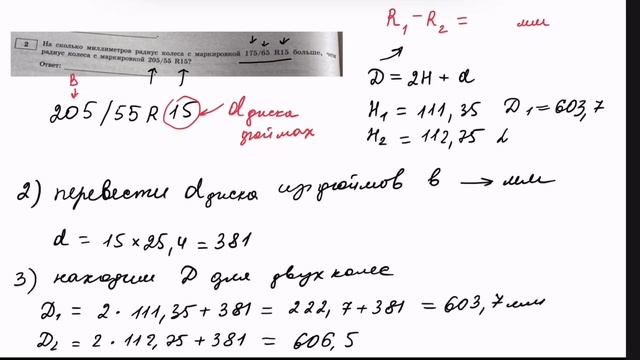 R₁ − R₂ = мм
2 На сколько миллиметров радиус колеса с маркировкой 175/65 R15 больше, чем
радиус колеса с маркировкой 205/55 R15?
Ответ:
B
205/55 R 15 d диска
дюймах
D = 2H + d
H₁ = 111,35 D₁ = 603,7
H₂ = 112,75
2) перевести d диска из дюймов в → мм
d = 15 × 25,4 = 381
3) находим D для двух колес
D₁ = 2 · 111,35 + 381 = 222,7 + 381 = 603,7 мм
D₂ = 2 · 112,75 + 381 = 606,5